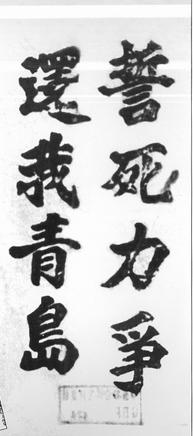 誓死力爭
還我青島